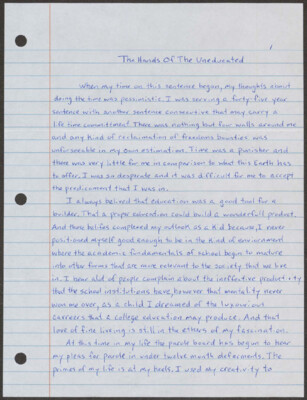 1
The Hands Of The Uneducated
When my time on this sentence began, my thoughts about
doing the time was pessimistic. I was serving a forty-five year
sentence with another sentence consecutive that may carry a
life time commitment! There was nothing but four walls around me
and any kind of reclamation of freedoms bounties was
unforseeable in my own estimation. Time was a punisher and
there was very little for me in comparison to what this Earth has
to offer. I was so desperate and it was difficult for me to accept
the predicament that I was in.
I always believed that education was a good tool for a
builder. That a proper education could build a wonderfull product.
And those beliefs completed my outlook as a kid because, I never
positioned myself good enough to be in the kind of environment
where the academic fundamentals of school began to mature
into other forms that are more relevant to the society that we live
in. I hear alot of people complain about the ineffective productivity
that the school institutions have, however that mentality never
won me over, as a child I dreamed of the luxurious
careers that a college education may produce. And that
love of fine living is still in the ethers of my fascination.
At this time in my life the parole board has begun to hear
my pleas for parole in under twelve month deferments. The
prines of my life is at my heels. I used my creativity to